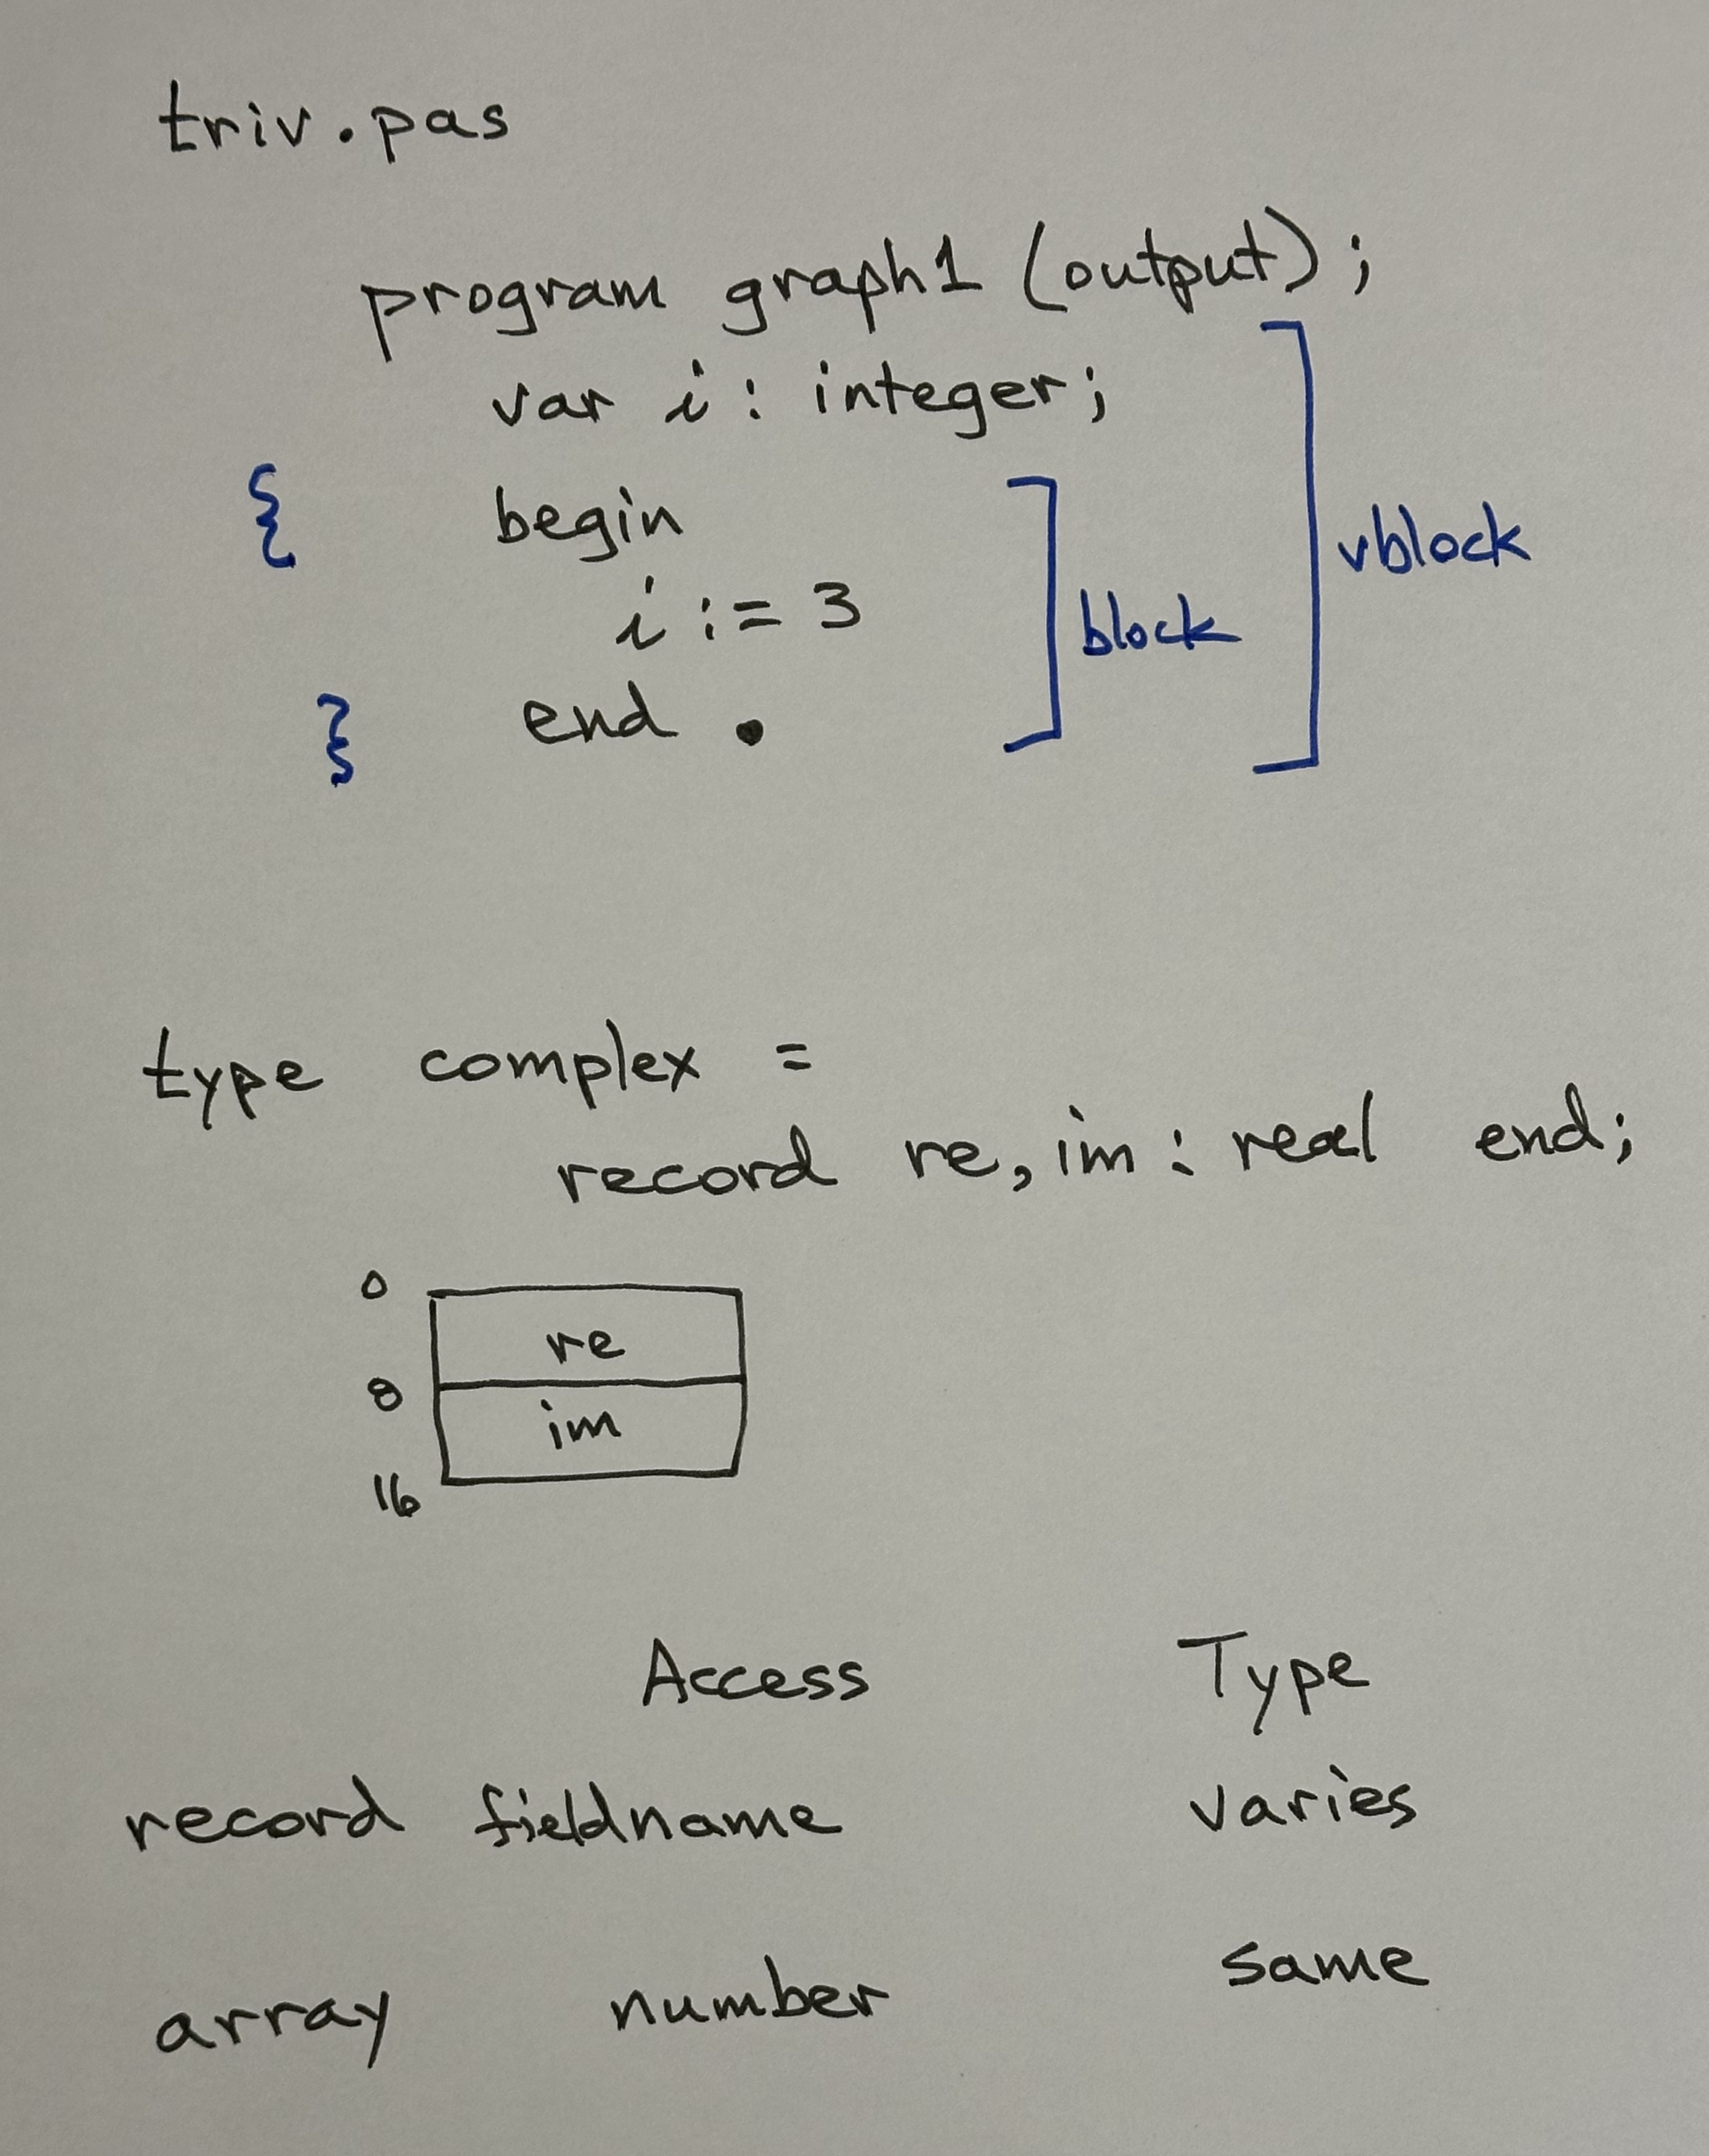 triv.pas
program graph1 (output);
var i : integer;
{ begin
i := 3
block
vblock
} end .
type complex =
record re, im : real end;
0
re
8
im
16
Access Type
record fieldname varies
array number same